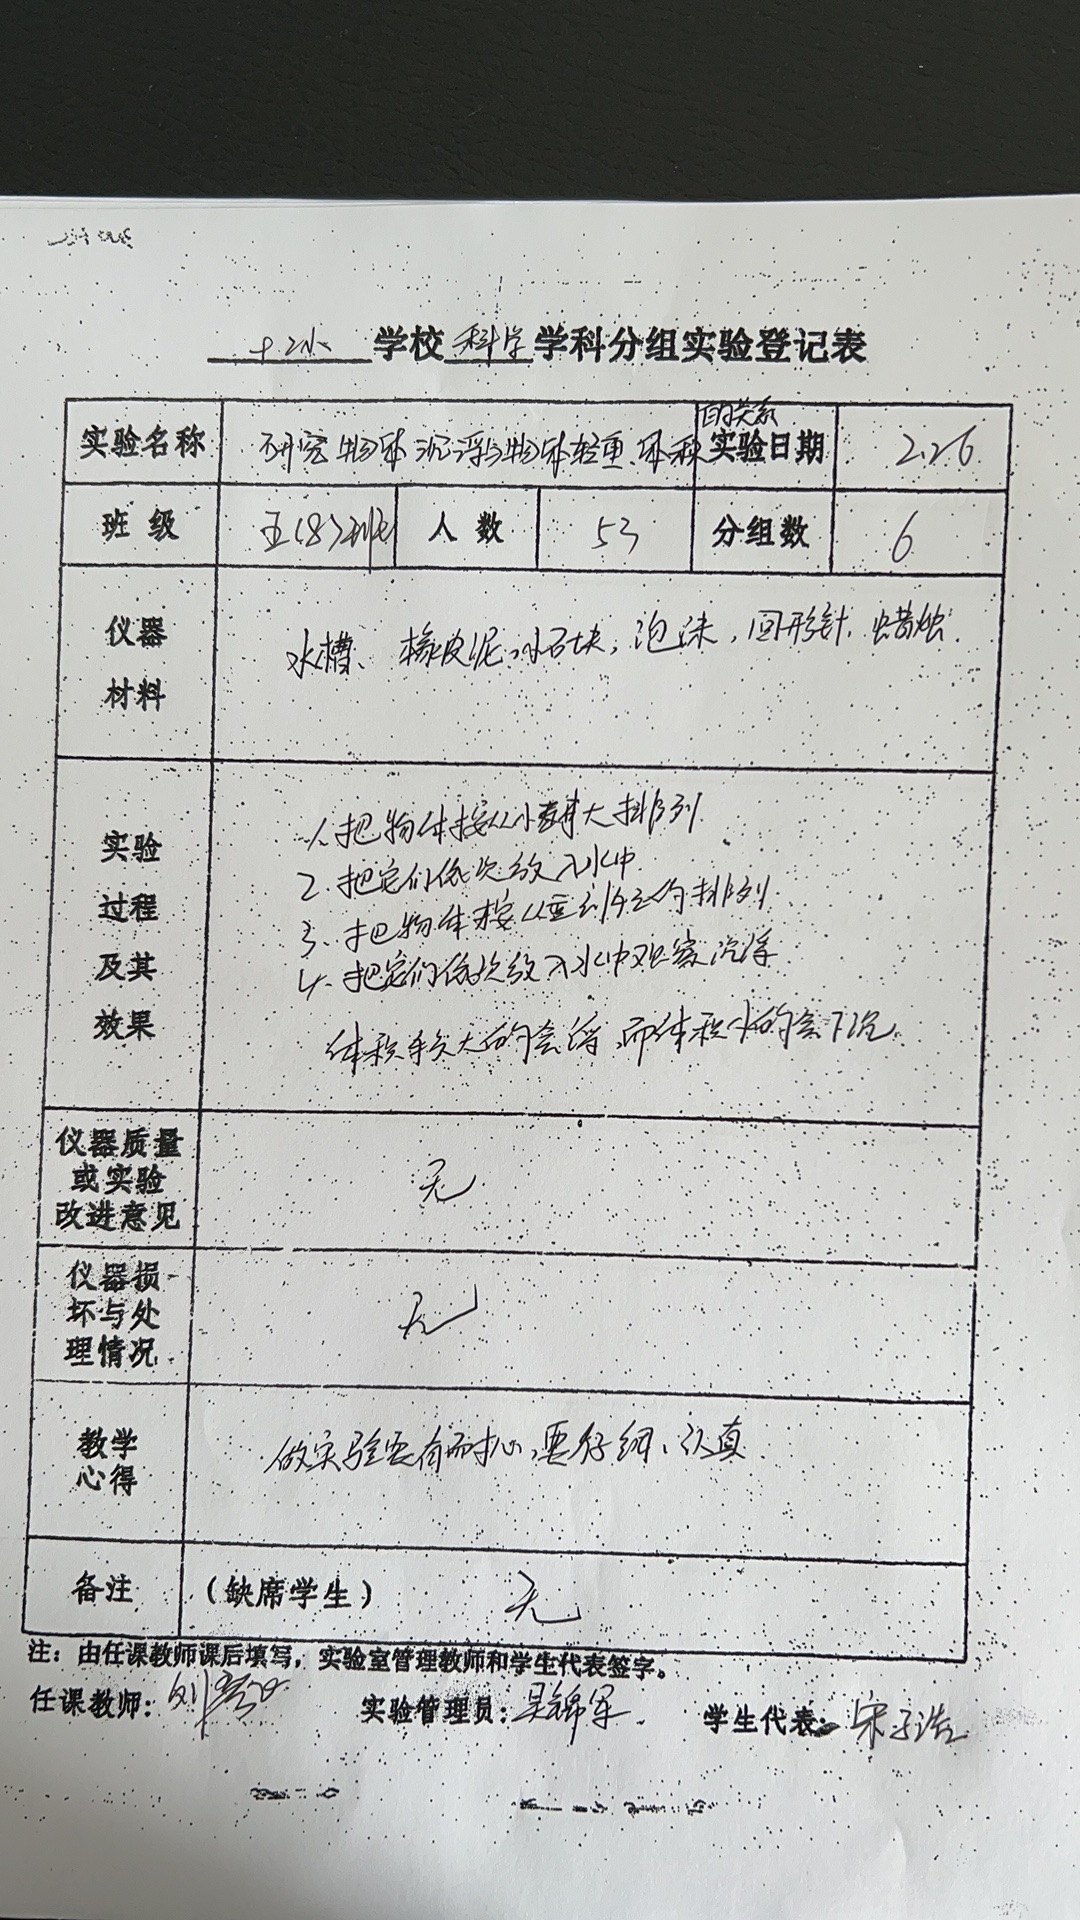 十二小 学校 科学 学科分组实验登记表
的关系
实验名称 研究物体沉浮与物体轻重、体积 实验日期 2.26
班 级 五(8)班 人 数 53 分组数 6
仪器
材料
水槽、橡皮泥、小石块,泡沫,回形针、蜡烛.
实验
过程
及其
效果
1. 把物体按从小到大排列
2. 把它们依次放入水中.
3. 把物体按从重到轻的排列
4. 把它们依次放入水中观察沉浮
体积较大的会浮,而体积小的会下沉.
仪器质量
或实验
改进意见
无
仪器损
坏与处
理情况
无
教学
心得
做实验要有耐心,要仔细、认真
备注 (缺席学生) 无
注:由任课教师课后填写,实验室管理教师和学生代表签字。
任课教师: 刘 实验管理员: 吴锦军. 学生代表: 宋子浩